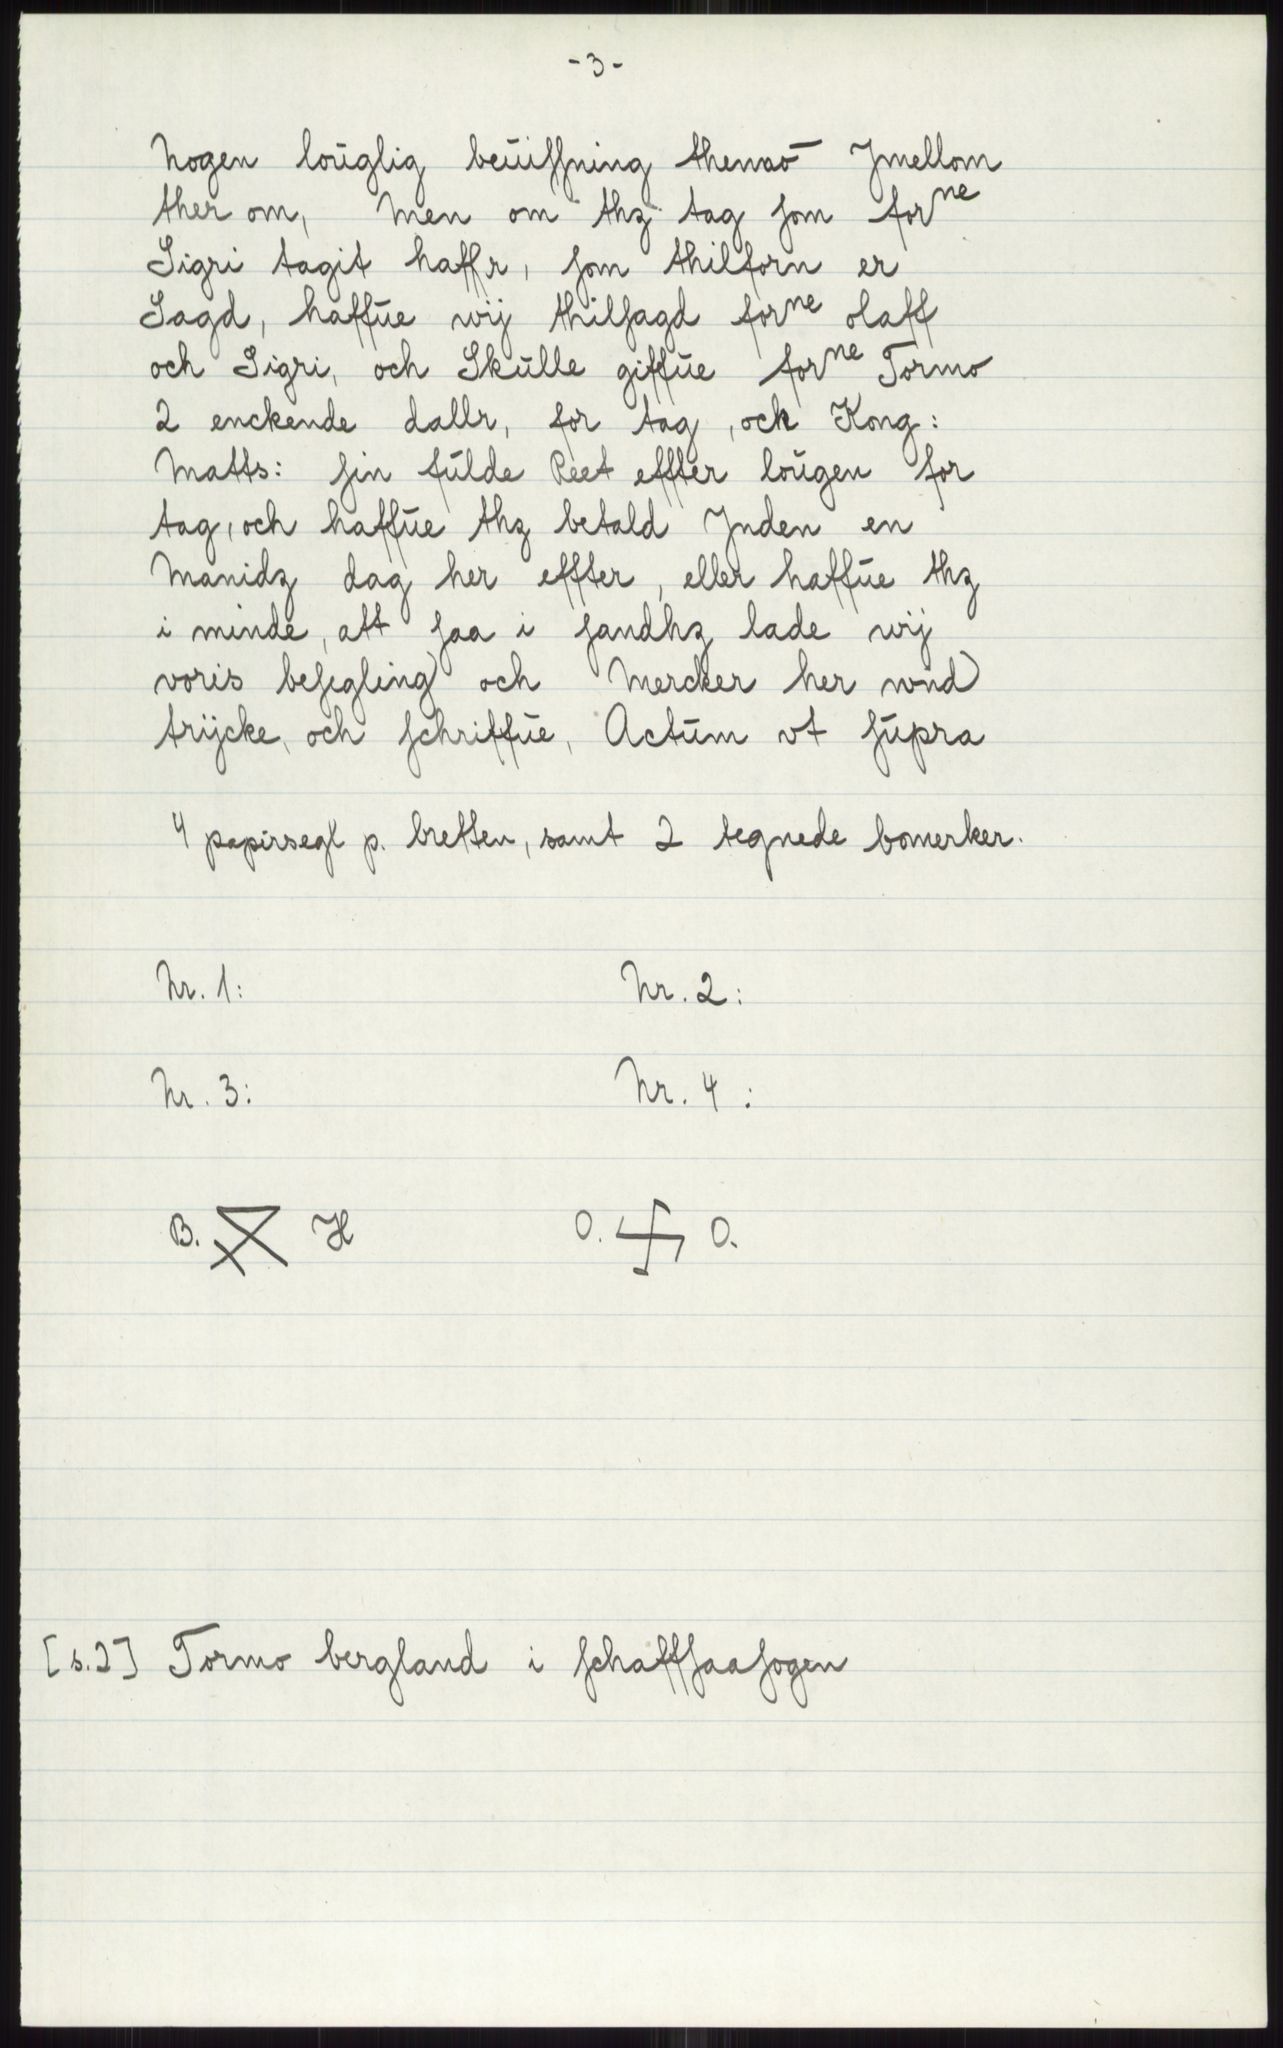 -3-
Nogen loŭglig beŭiſſning themaō Jmellom
ther om, Men om thz tag ſom forne
Sigri tagit haffr, ſom thilforn er
Sagd, haffŭe wij thilſagd forne olaff
och Sigri, och Skŭlle giffŭe forne Tormo
2 enckende dallr, for tag, och Kong:
Matts: ſin fŭlde Reet effter loŭgen for
tag, och haffŭe thz betald Jnden en
Manidz dag her effter, eller haffŭe thz
i minde, att ſaa i ſandhz lade wij
voris beſegling och Mercker her wnd
trÿcke, och ſchriffŭe, Actŭm vt ſŭpra
4 papirsegl p. bretten, samt 2 tegnede bomerker.
Nr. 1: Nr. 2:
Nr. 3: Nr. 4:
B. H O. O.
[s.2] Tormo bergland i ſchaffſaaſogen